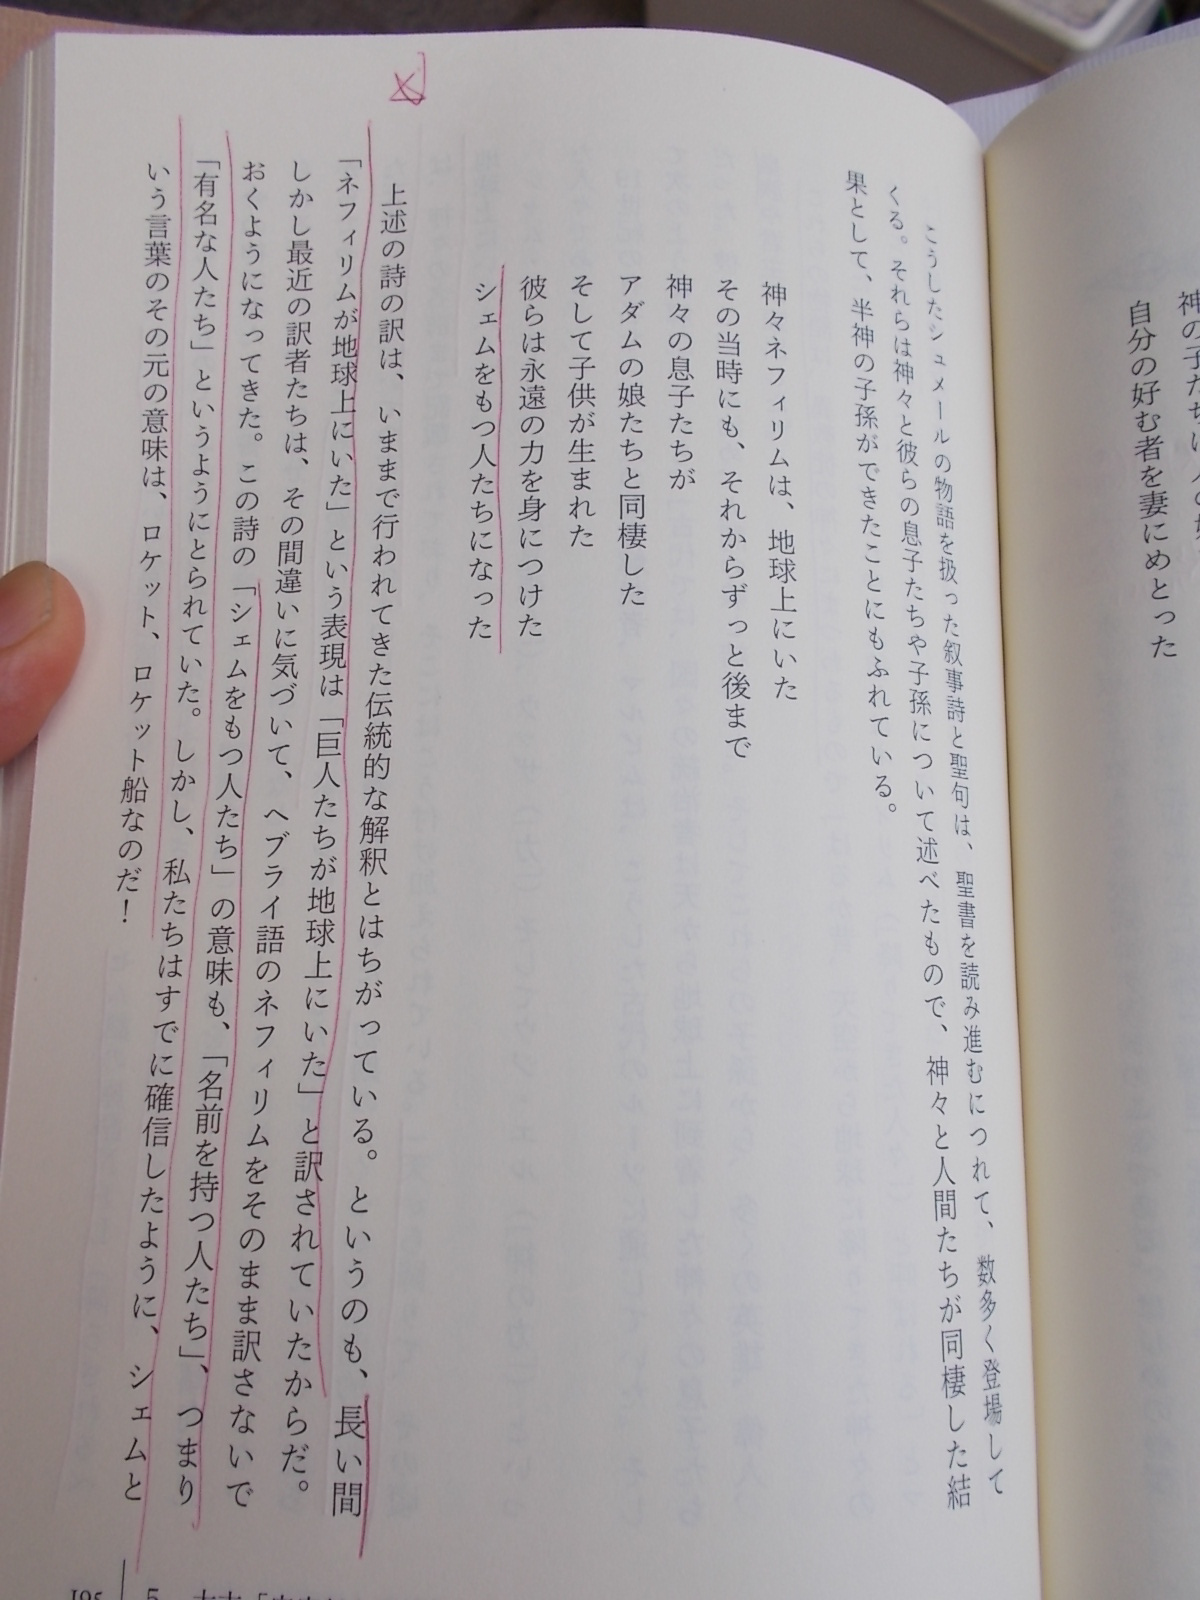 自分の好む者を妻にめとった
こうしたシュメールの物語を扱った叙事詩と聖句は、聖書を読み進むにつれて、数多く登場して
くる。それらは神々と彼らの息子たちや子孫について述べたもので、神々と人間たちが同棲した結
果として、半神の子孫ができたことにもふれている。
神々ネフィリムは、地球上にいた
その当時にも、それからずっと後まで
神々の息子たちが
アダムの娘たちと同棲した
そして子供が生まれた
彼らは永遠の力を身につけた
シェムをもつ人たちになった
上述の詩の訳は、いままで行われてきた伝統的な解釈とはちがっている。というのも、長い間
「ネフィリムが地球上にいた」という表現は「巨人たちが地球上にいた」と訳されていたからだ。
しかし最近の訳者たちは、その間違いに気づいて、ヘブライ語のネフィリムをそのまま訳さないで
おくようになってきた。この詩の「シェムをもつ人たち」の意味も、「名前を持つ人たち」、つまり
「有名な人たち」というようにとられていた。しかし、私たちはすでに確信したように、シェムと
いう言葉のその元の意味は、ロケット、ロケット船なのだ！
195 5